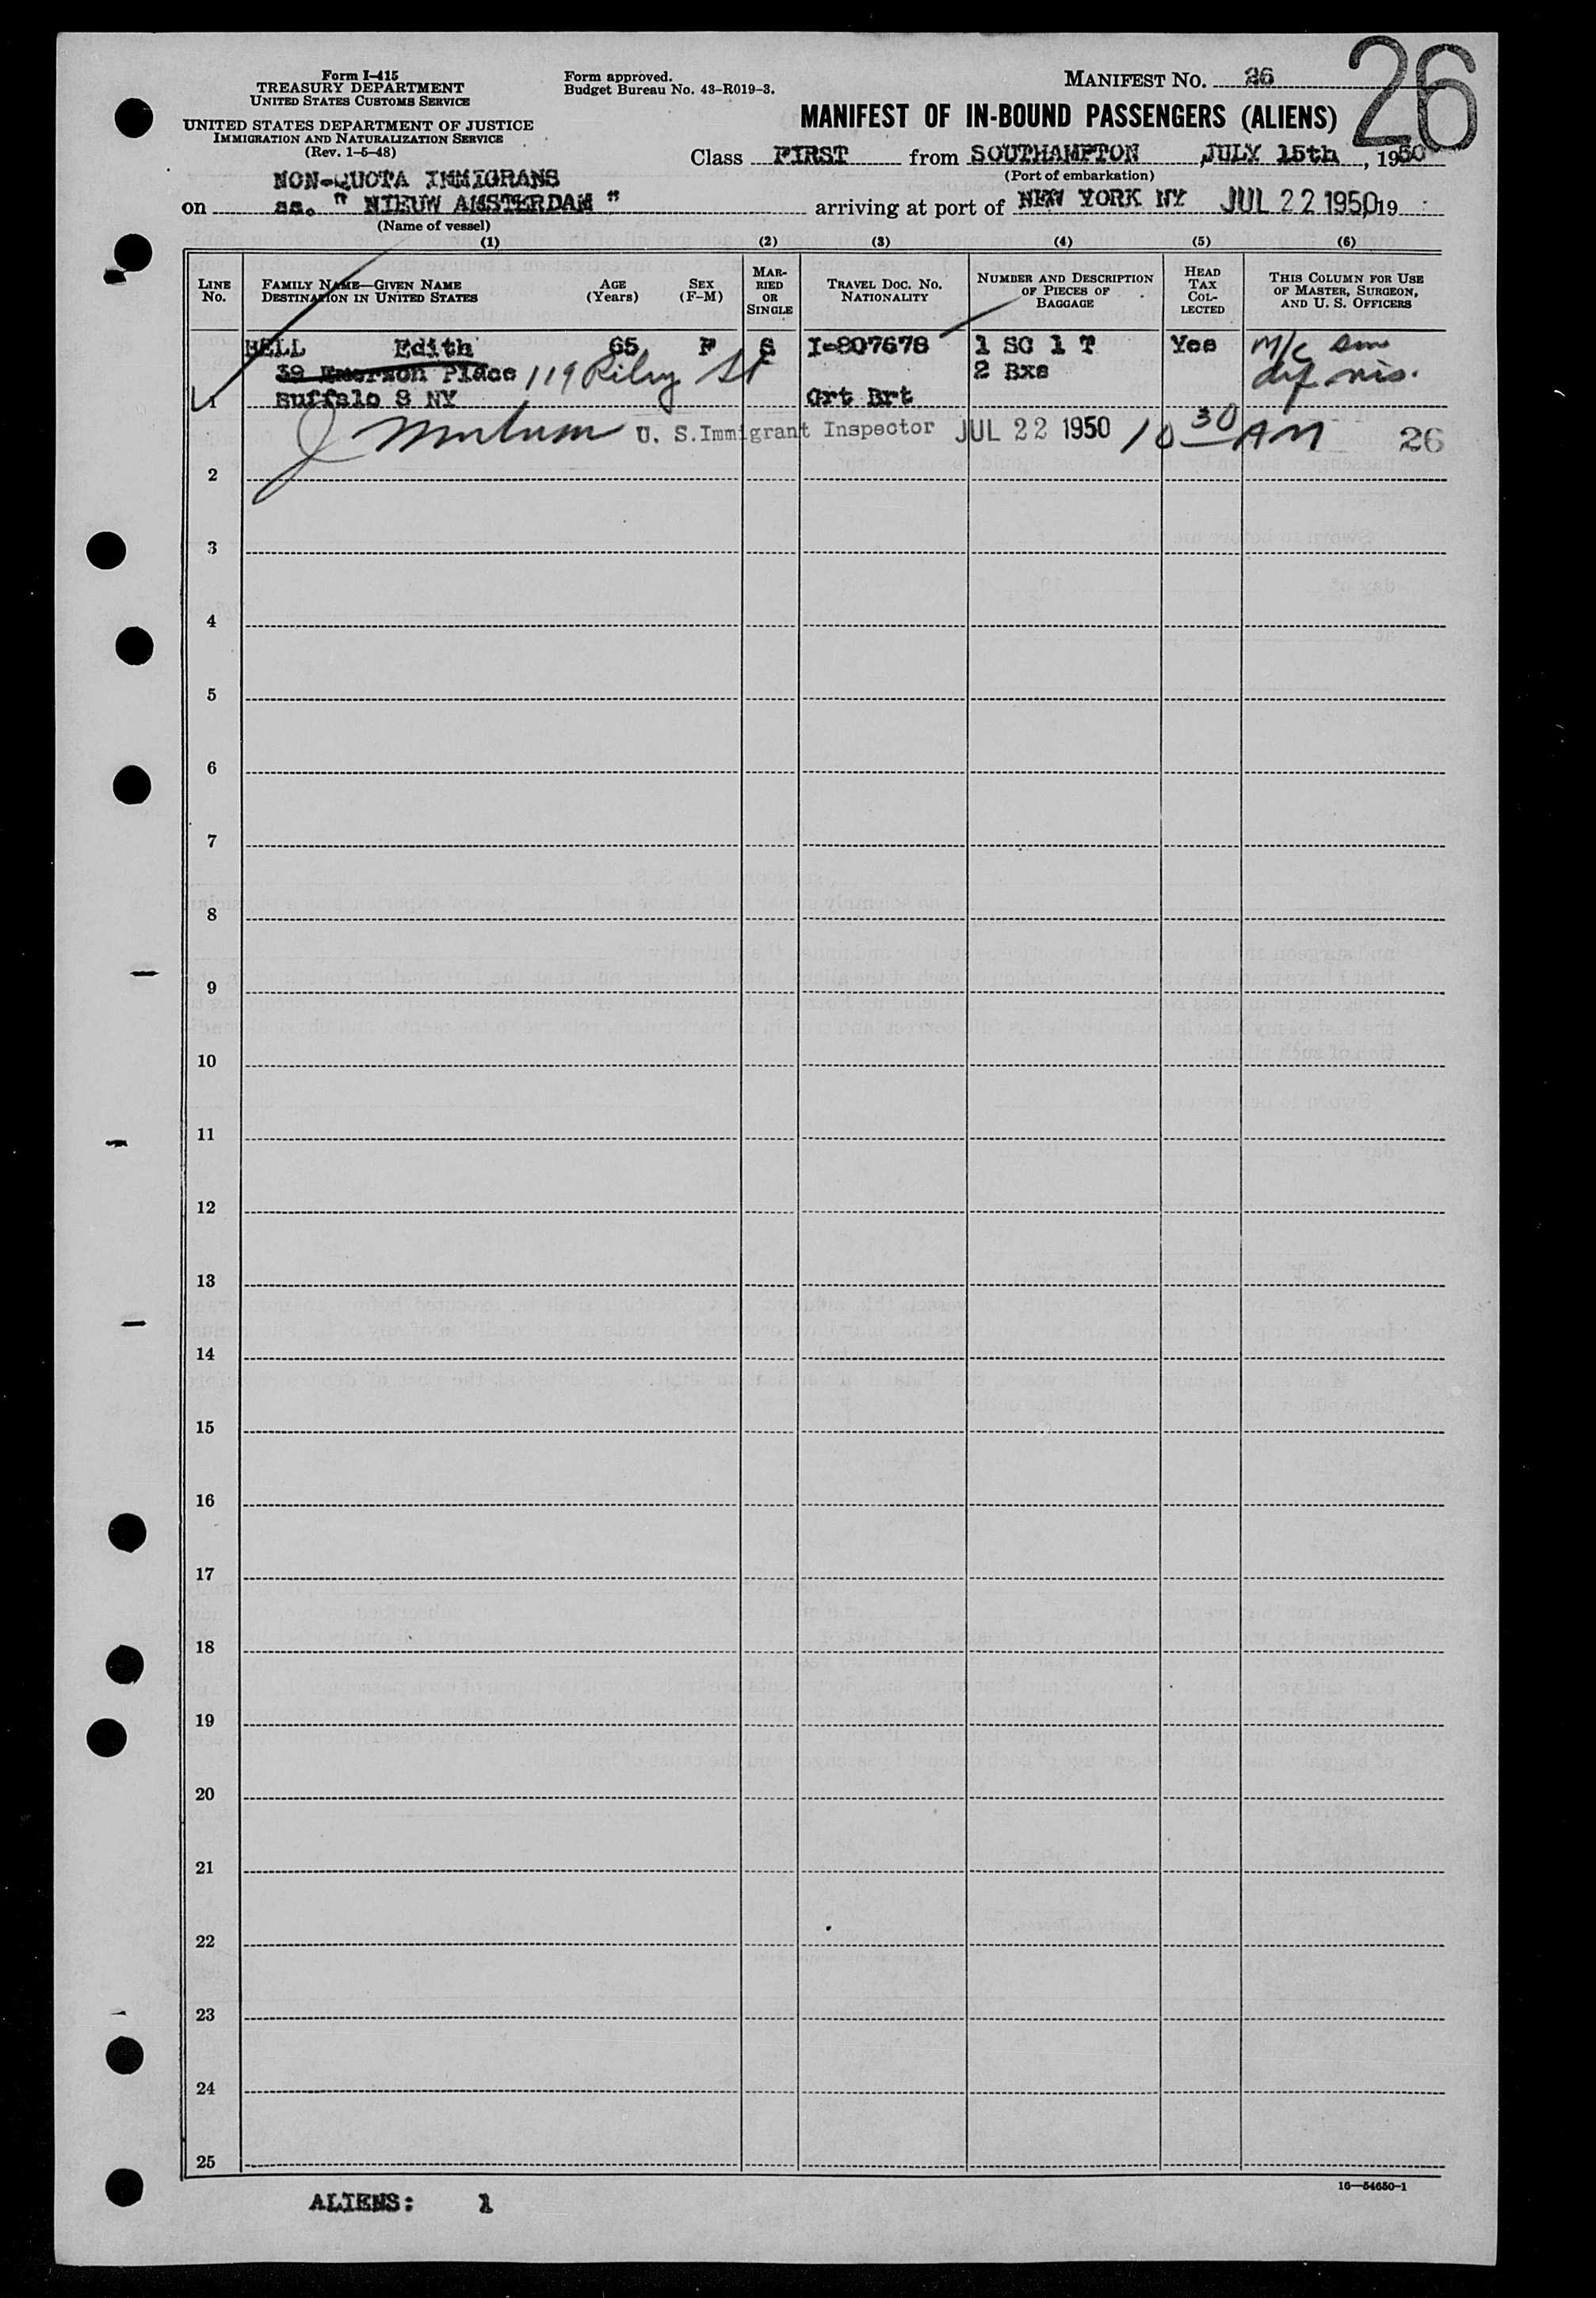 Form I-415
TREASURY DEPARTMENT
UNITED STATES CUSTOMS SERVICE
UNITED STATES DEPARTMENT OF JUSTICE
IMMIGRATION AND NATURALIZATION SERVICE
(Rev. 1-5-48)
Form approved.
Budget Bureau No. 43-R019-3.
MANIFEST NO. 26
26
MANIFEST OF IN-BOUND PASSENGERS (ALIENS)
Class FIRST from SOUTHAMPTON JULY 15th, 1950
(Port of embarkation)
NON-QUOTA IMMIGRANS
on ss. " NIEUW AMSTERDAM " arriving at port of NEW YORK NY JUL 22 1950, 19
(Name of vessel)
(1) (2) (3) (4) (5) (6)
LINE No. FAMILY NAME—GIVEN NAME DESTINATION IN UNITED STATES AGE (Years) SEX (F-M) MARRIED OR SINGLE TRAVEL DOC. NO. NATIONALITY NUMBER AND DESCRIPTION OF PIECES OF BAGGAGE HEAD TAX COLLECTED THIS COLUMN FOR USE OF MASTER, SURGEON, AND U. S. OFFICERS
BELL Edith 65 F S I-807678 1 SC 1 T Yes M/c
39 Emerson Place 119 Riley St 2 Bxs
1 Buffalo 8 NY Grt Brt
U. S. Immigrant Inspector JUL 22 1950 10 30 AM 26
2
3
4
5
6
7
8
9
10
11
12
13
14
15
16
17
18
19
20
21
22
23
24
25
16—54650-1
ALIENS: 1